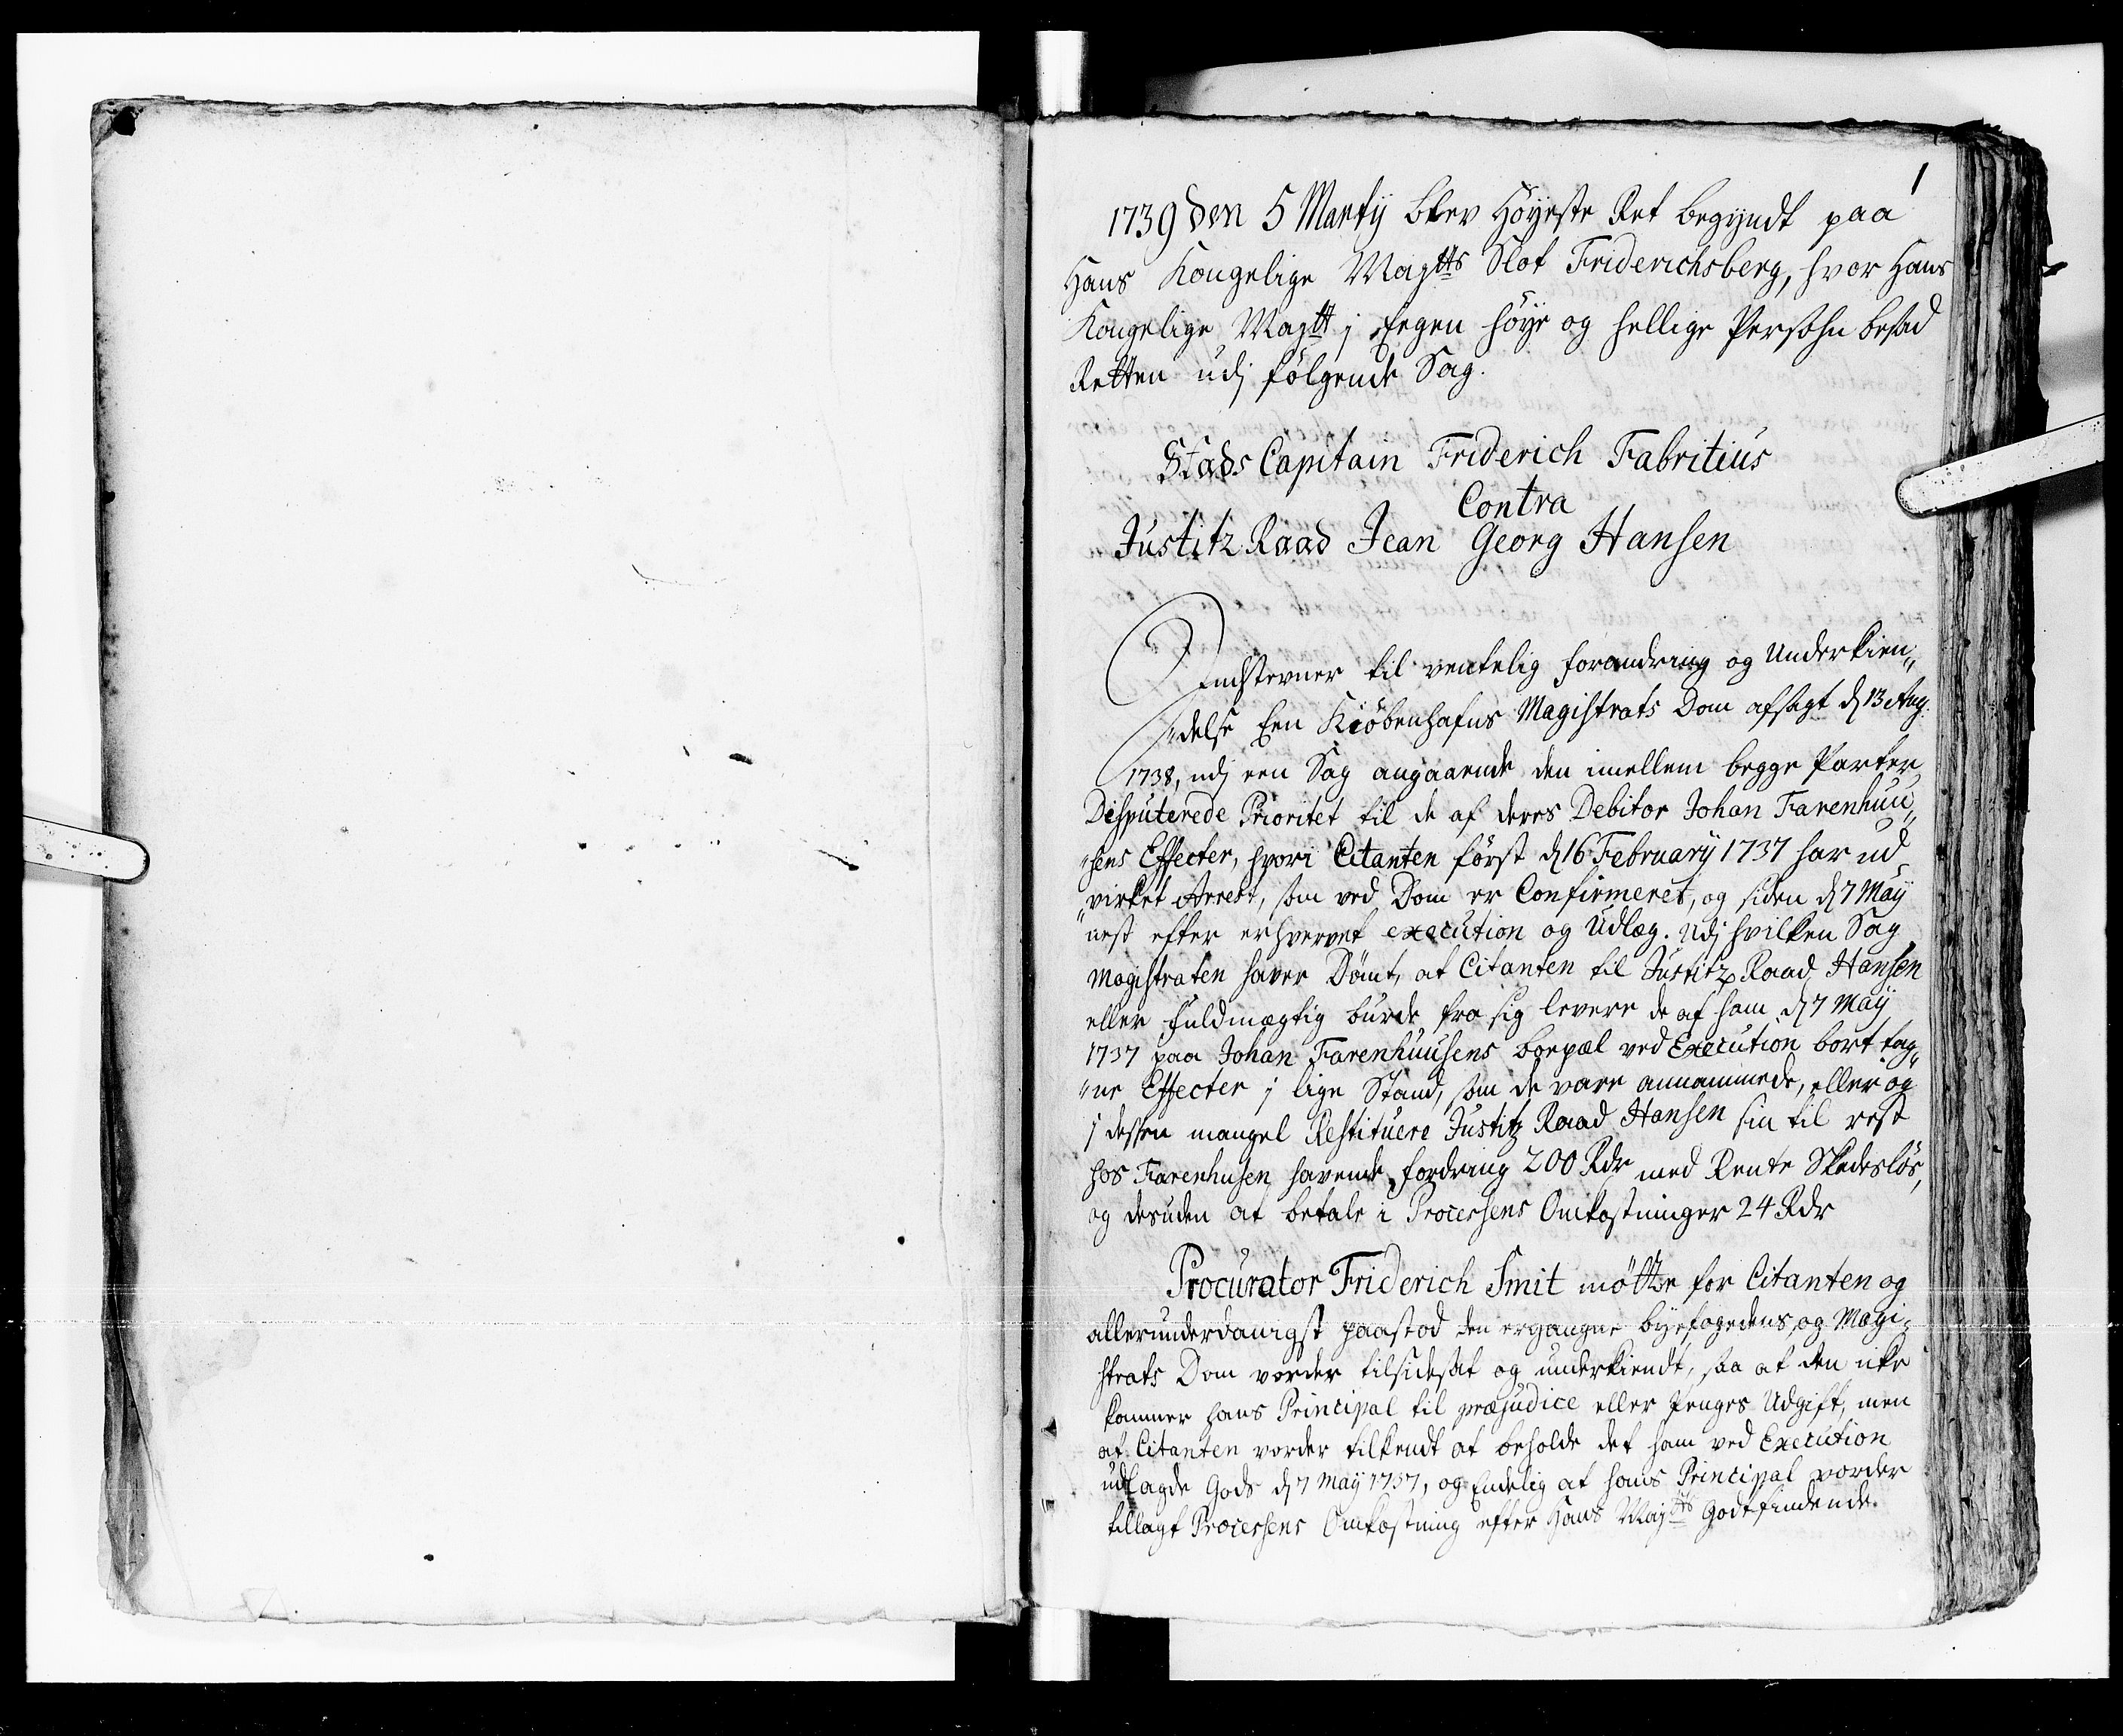 1
1739 den 5 Martij blev Høyeste Ret begyndt paa
Hans Kongelige Maytts Slot Friderichsberg, hvor Hans
Kongelige Maytt j Eegen høye og hellige Persohn besad
Retten udj følgende Sag.
Stads Capitain Friderich Fabritius
Contra
Justitz Raad Jean Georg Hansen
Indstevner til ventelig forandring og Underkien„
„delse Een Kiöbenhafns Magistrats Dom afsagt d 13 Aug.
1738, udj een Sag angaaende den imellem begge Parter
Disputerede Prioritet til de af deres Debitor Johan Farenhuu„
„sens Effecter, hvori Citanten först d 16 February 1737 har ud„
„virket Arrest, som ved Dom er Confirmeret, og siden d 7 May
nest efter erhvervet execution og Udlæg. Udj hvilken Sag
Magistraten haver Dömt, at Citanten til Justitz Raad Hansen
eller fuldmægtig burde fra sig levere de af ham d 7 May
1737 paa Johan Farenhuusens boepæl ved Execution bort tag„
„ne Effecter j lige Stand, som de vare annammede, eller og
j dessen mangel Restituere Justitz Raad Hansen sin til rest
hos Farenhusen havende fordring 200 Rdr med Rente Skadeslös,
og desuden at betale i Processens Omkostninger 24 Rdr
Procurator Friderich Smit mötte for Citanten og
allerunderdanigst paastod den ergangne byefogedens, og Magi„
strats Dom vorder tilsidesat og underkiendt, saa at den icke
kommer hans Principal til præjudice eller Penges Udgift, men
at Citanten vorder tilkendt at beholde det ham ved Execution
udlagde Gods d 7 May 1737, og Endelig at hans Principal vorder
tillagt Processens Omkostning efter Hans Maytts Godtfindende.